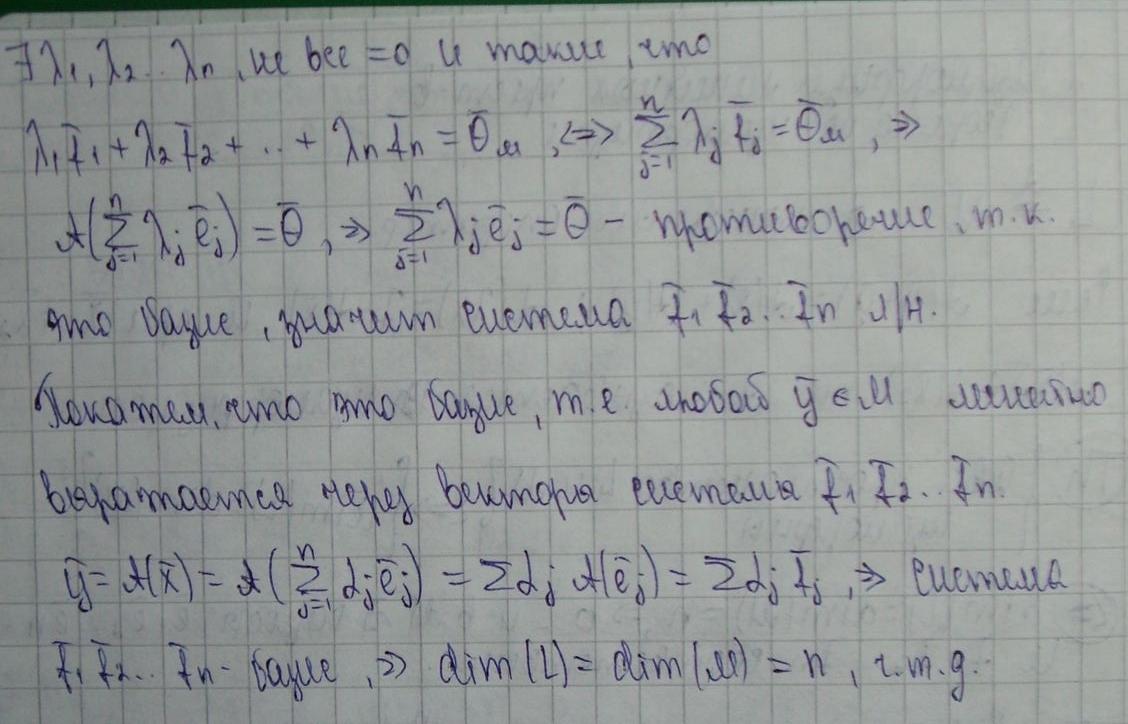 ∃ λ₁, λ₂.. λₙ, не все = 0 и такие, что
λ₁f̄₁ + λ₂f̄₂ + .. + λₙf̄ₙ = θ̄ₘ, <=> ∑ⱼ₌₁ⁿ λⱼ f̄ⱼ = θ̄ₘ, =>
A(∑ⱼ₌₁ⁿ λⱼ ēⱼ) = θ̄, => ∑ⱼ₌₁ⁿ λⱼ ēⱼ = θ̄ - противоречие, т.к.
это базис, значит система f̄₁ f̄₂.. f̄ₙ л/н.
Покажем, что это базис, т.е. любой ȳ ∈ M линейно
выражается через векторы системы f̄₁ f̄₂.. f̄ₙ.
ȳ = A(x̄) = A(∑ⱼ₌₁ⁿ αⱼ ēⱼ) = ∑αⱼ A(ēⱼ) = ∑αⱼ f̄ⱼ, => система
f̄₁ f̄₂.. f̄ₙ - базис, => dim(L) = dim(M) = n, ч.т.д.